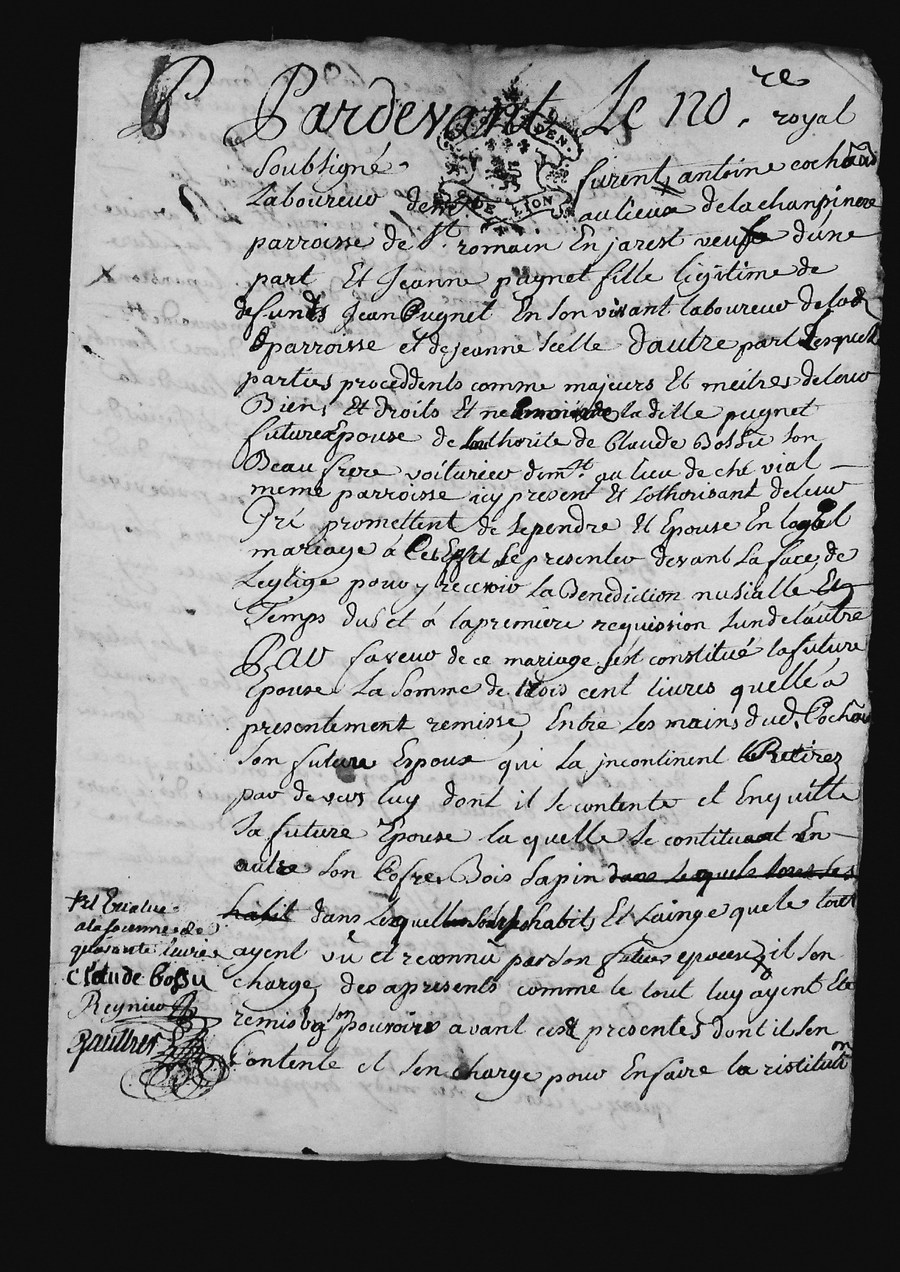 Pardevant Le no.re royal
Soubsigné furent antoine cochard
Laboureur demt au lieux de la chanpinere
parroisse de St romain En jarest veufe dune
part Et Jeanne pugnet fille legitime de
defunds Jean Pugnet En son vivant laboureur de lad
parroisse et de jeanne Scelle dautre part Lesquelle
parties proceddents comme majeurs Et meitres de leur
Biens Et droits Et la ditte pugnet
future Epouse de Lauthorite de Claude Bossu Son
Beau frere voiturier demt au lieu de che vial
meme parroisse icy present Et Lothorisant de leur
Gré promettent de se pendre Et Epouse En legal
mariage à Cet Efet se presenter devant La face de
Leglige pour y recevoir La Benediction nusialle Et
Temps dus et à la premiere requission Lun de lautre
Et au faveur de ce mariage sest constitué la future
Epouse La Somme de trois cent livres quelle a
presentement remisse Entre Les mains dud. Cochard
Son future Epoux qui La jncontinent Retirez
par de vers luy dont il se contente et En quitte
Sa future Epouse la quelle se contituant En
autre Son Cofre Bois Sapin dans Lequels tous les
habit dans Lequelle habits Et Lainge quele tout
ayent vü et reconnü par son future epouex il son
charge des apresents comme le tout luy ayent Ete
remis En son pouvoire avant cest presentes dont il sen
Contente et Sen charge pour En faire la ristitution
Et Evalue
a la somme de
quarante livres
Claude Bossu
Reynier
Gaultier